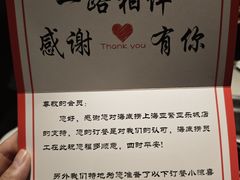 一路相伴
感谢 有你
Thank you
尊敬的会员:
您好,感谢您对海底捞上海亚繁亚乐城店
的支持,您的订餐是对我们的认可,海底捞员
工在此祝您福多顺意,四时平安!
另外我们特地为您准备了以下订餐小惊喜